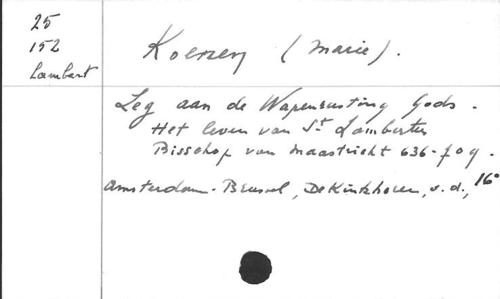 25
152
Lambert
Koenen (Marie).
Leg aan de Wapenrusting Gods.
Het leven van St Lambertus
Bisschop van Maastricht 636-709.
Amsterdam-Brussel, De Kinkhoren, s.d., 16°